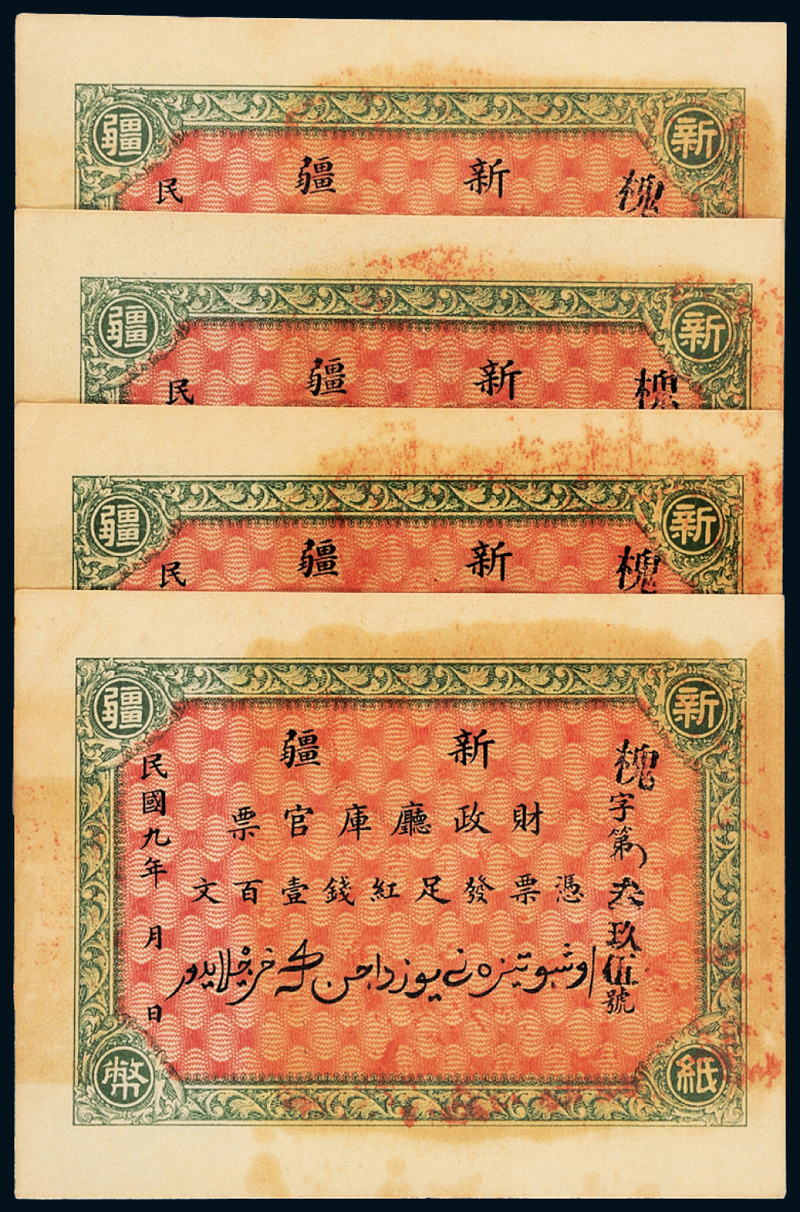 新 疆
新 疆
槐
民
新 疆
新 疆
槐
民
新 疆
新 疆
槐
民
新 疆
新 疆
財政廳庫官票
憑票發足紅錢壹百文
槐字第 叁玖伍號
民國九年 月 日
紙幣